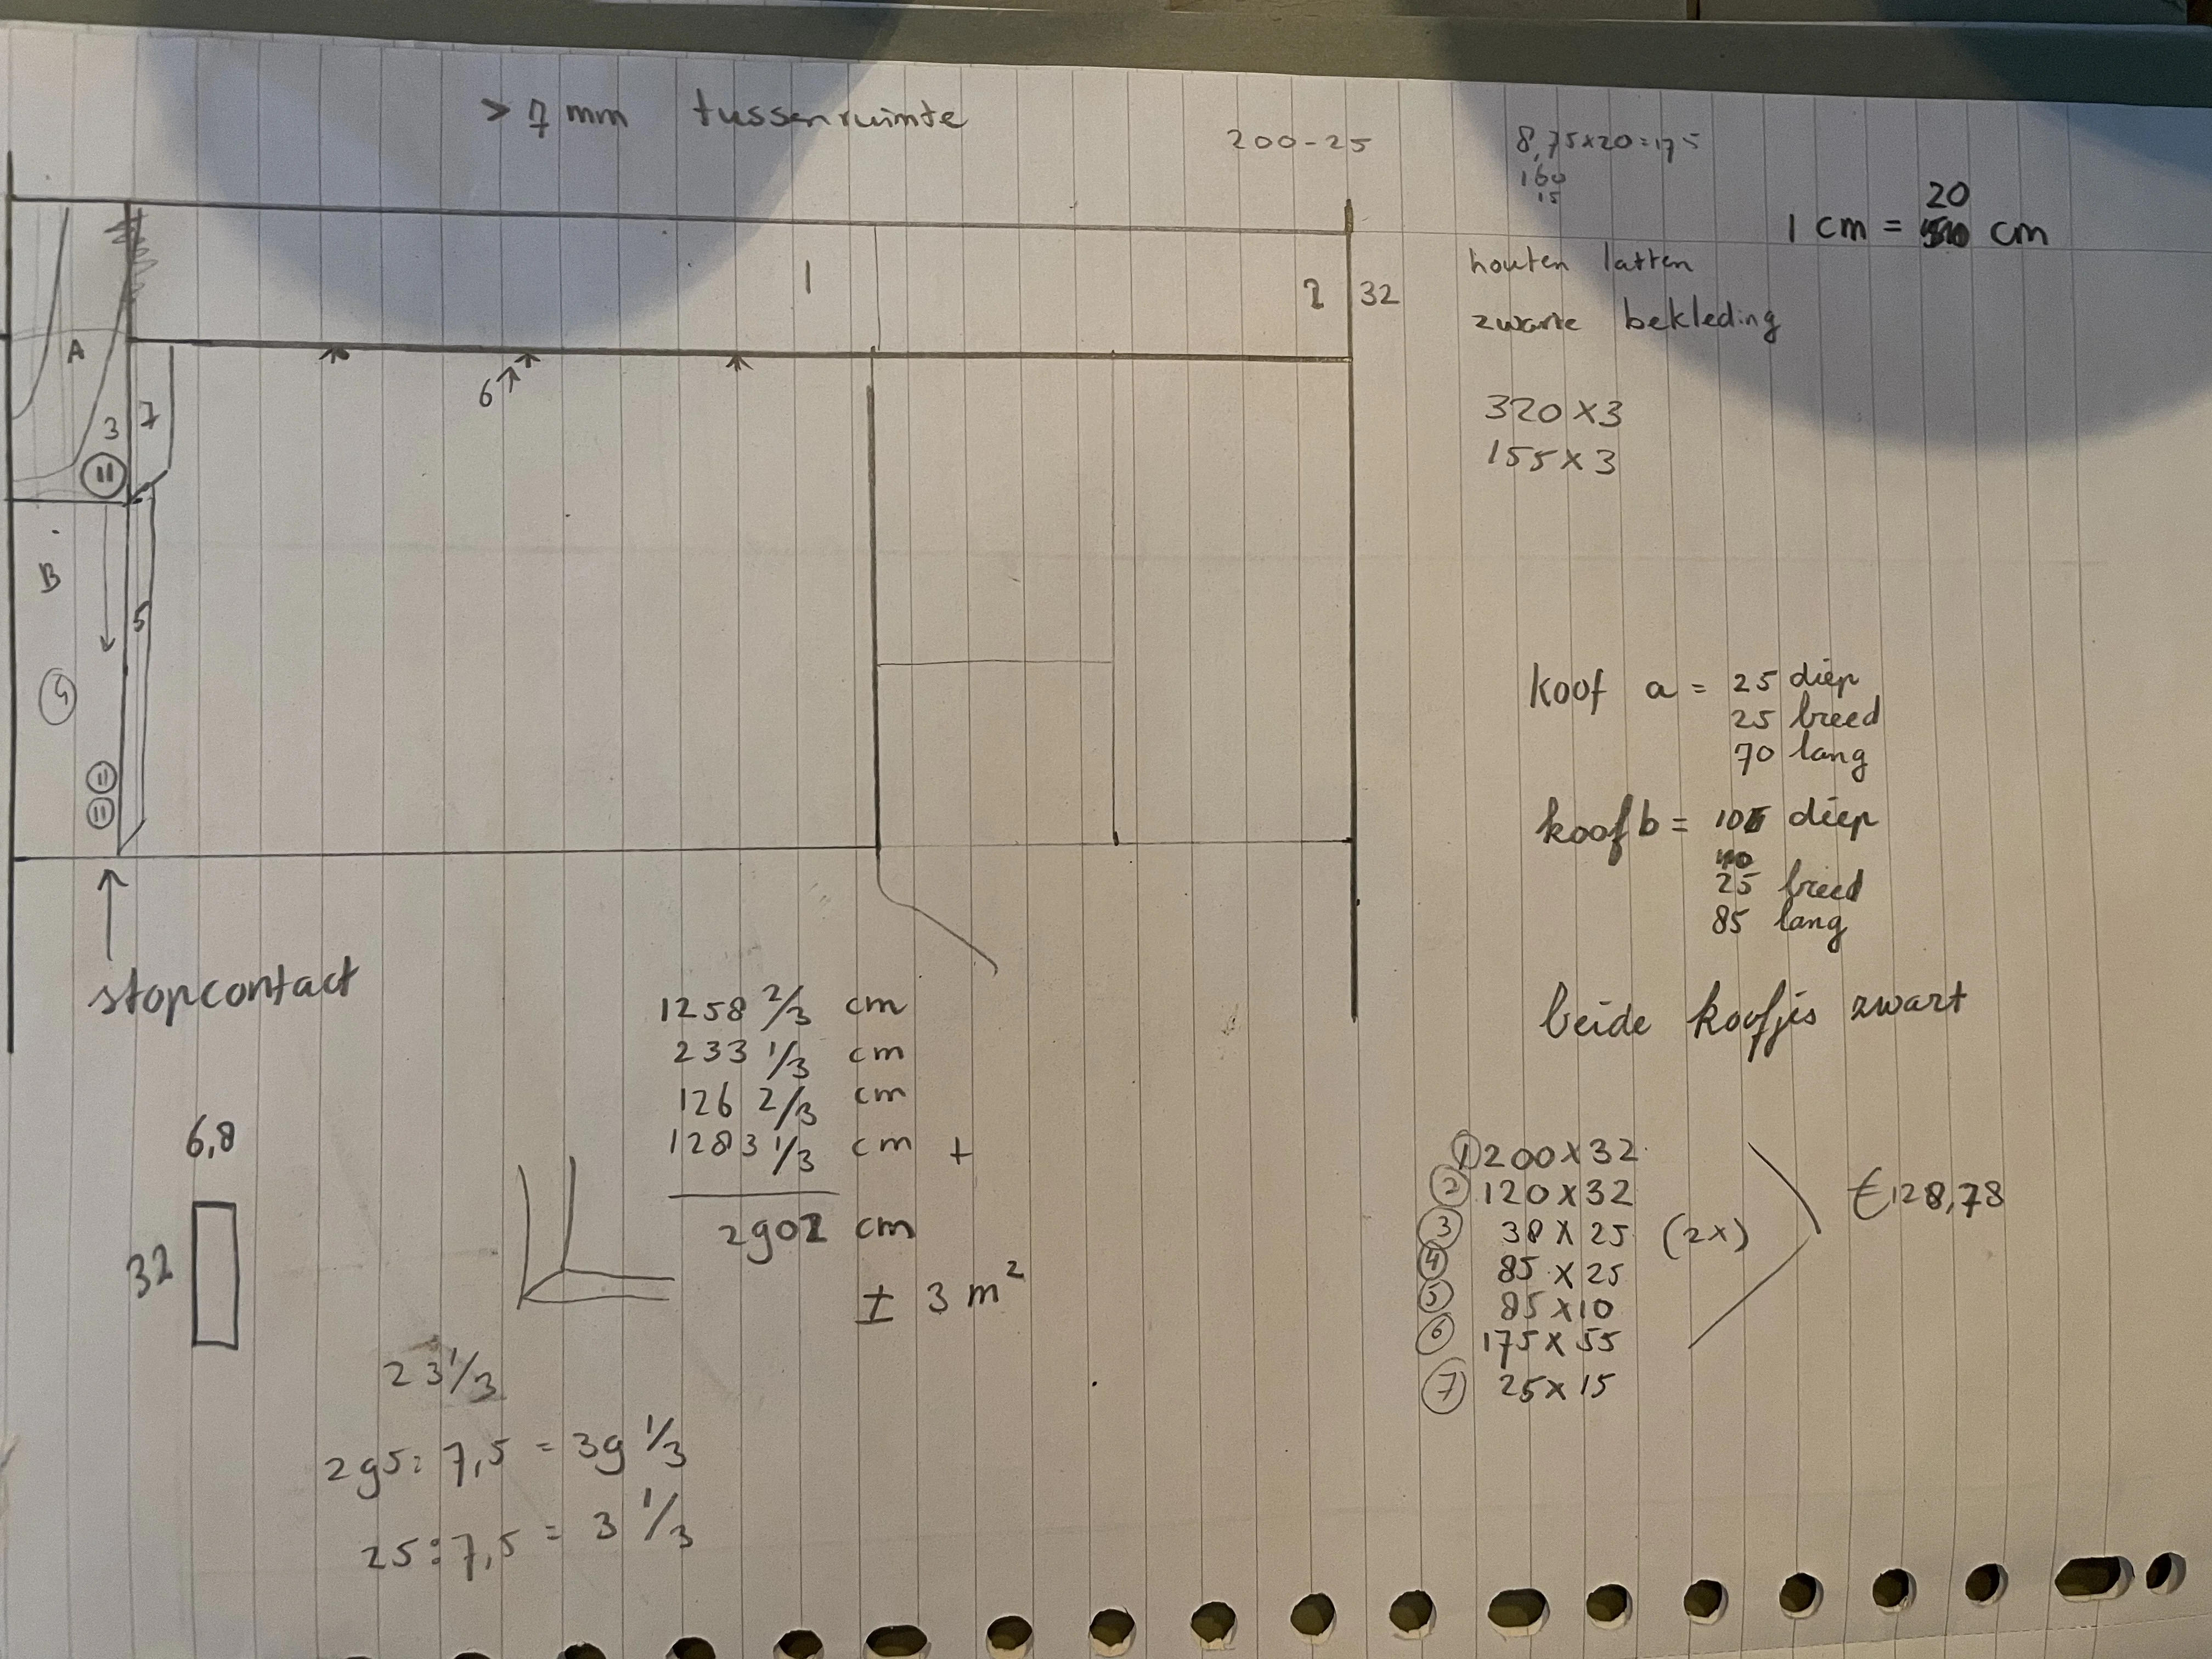 > 7 mm tussenruimte
200-25
8,75x20=175
160
15
20
1 cm = cm
houten latten
zwarte bekleding
1
2
32
A
3
7
6
320 x 3
155 x 3
B
5
koof a = 25 diep
25 breed
70 lang
koof b = 10 diep
25 breed
85 lang
stopcontact
beide koofjes zwart
1258 2/3 cm
233 1/3 cm
126 2/3 cm
1283 1/3 cm +
2902 cm
± 3 m²
6,8
32
① 200 x 32
② 120 x 32
③ 38 x 25 (2x)
④ 85 x 25
⑤ 85 x 10
⑥ 175 x 55
⑦ 25 x 15
€128,78
23 1/3
295 : 7,5 = 39 1/3
25 : 7,5 = 3 1/3